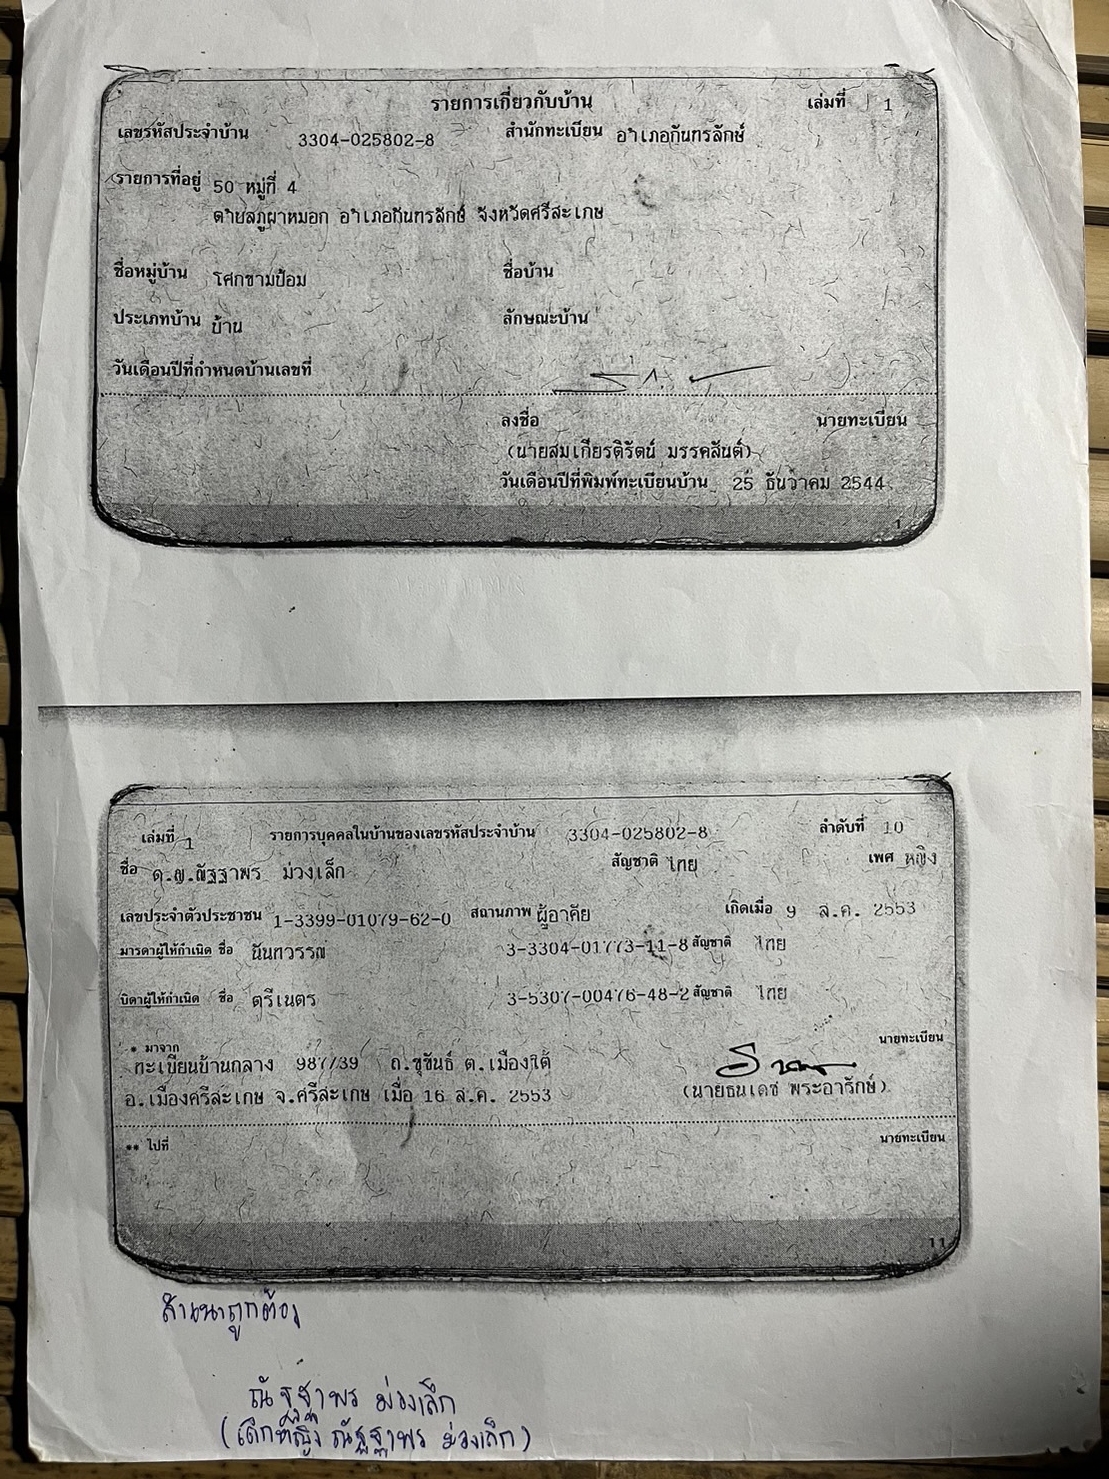 รายการเกี่ยวกับบ้าน เล่มที่ 1
เลขรหัสประจำบ้าน 3304-025802-8 สำนักทะเบียน อำเภอกันทรลักษ์
รายการที่อยู่ 50 หมู่ที่ 4
ตำบลภูผาหมอก อำเภอกันทรลักษ์ จังหวัดศรีสะเกษ
ชื่อหมู่บ้าน โศกขามป้อม ชื่อบ้าน
ประเภทบ้าน บ้าน ลักษณะบ้าน
วันเดือนปีที่กำหนดบ้านเลขที่
ลงชื่อ นายทะเบียน
(นายสมเกียรติรัตน์ มรรคสันต์)
วันเดือนปีที่พิมพ์ทะเบียนบ้าน 25 ธันวาคม 2544
1
เล่มที่ 1 รายการบุคคลในบ้านของเลขรหัสประจำบ้าน 3304-025802-8 ลำดับที่ 10
ชื่อ ด.ญ.ณัฐฐาพร ม่วงเล็ก สัญชาติ ไทย เพศ หญิง
เลขประจำตัวประชาชน 1-3399-01079-62-0 สถานภาพ ผู้อาศัย เกิดเมื่อ 9 ส.ค. 2553
มารดาผู้ให้กำเนิด ชื่อ นันทวรรณ 3-3304-01773-11-8 สัญชาติ ไทย
บิดาผู้ให้กำเนิด ชื่อ ตรีเนตร 3-5307-00476-48-2 สัญชาติ ไทย
* มาจาก นายทะเบียน
ทะเบียนบ้านกลาง 987/39 ถ.ขุขันธ์ ต.เมืองใต้
อ.เมืองศรีสะเกษ จ.ศรีสะเกษ เมื่อ 16 ส.ค. 2553 (นายธนเดช พระอารักษ์)
** ไปที่ นายทะเบียน
11
สำเนาถูกต้อง
ณัฐฐาพร ม่วงเล็ก
(เด็กหญิง ณัฐฐาพร ม่วงเล็ก)